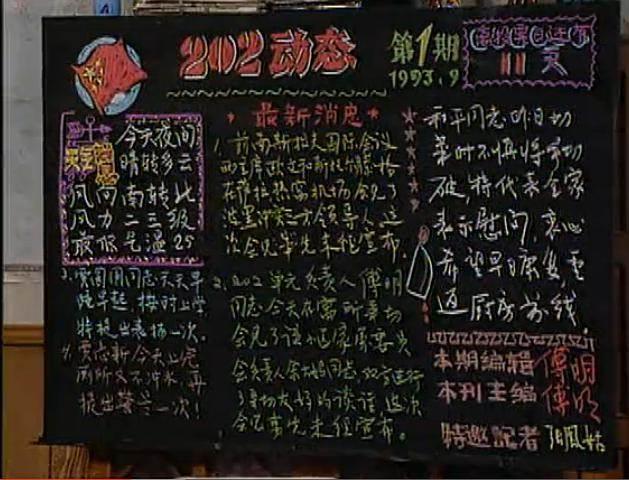 202动态
第1期
1993.9
11天
最新消息
今天夜间
晴转多云
风向南转北
风力二三级
最低气温25
1.前南斯拉夫国际会议
在萨拉热窝机场会见了
波黑冲突三方领导人这
次会见事先未经宣布。
2.202单元负责人傅明
同志今天在厕所
会见了
会负责人余大妈同志,双方进行
了亲切友好的谈话,这次
会见事先未经宣布。
3.贾圆圆同志天天早
睡早起 按时上学
特提出表扬一次。
4.贾志新今天上完
厕所又不冲水,再
提出警告一次!
和平同志昨日切
菜时不慎将手切
破,特代表全家
表示慰问,衷心
希望早日康复,重
返厨房前线
本期编辑 傅明
本刊主编 傅明
特邀记者